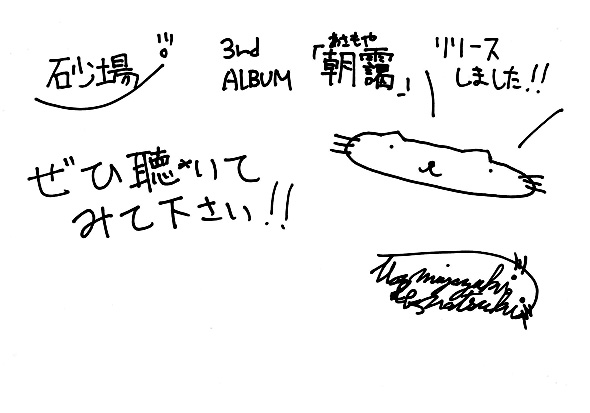 砂場 3rd ALBUM 「朝靄」 リリースしました!!
あさもや
ぜひ聴いて
みて下さい!!